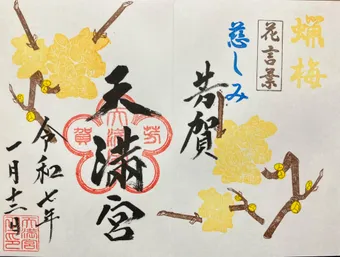 蝋梅
花言葉
慈しみ
芳賀
天満宮
令和七年
一月十一日